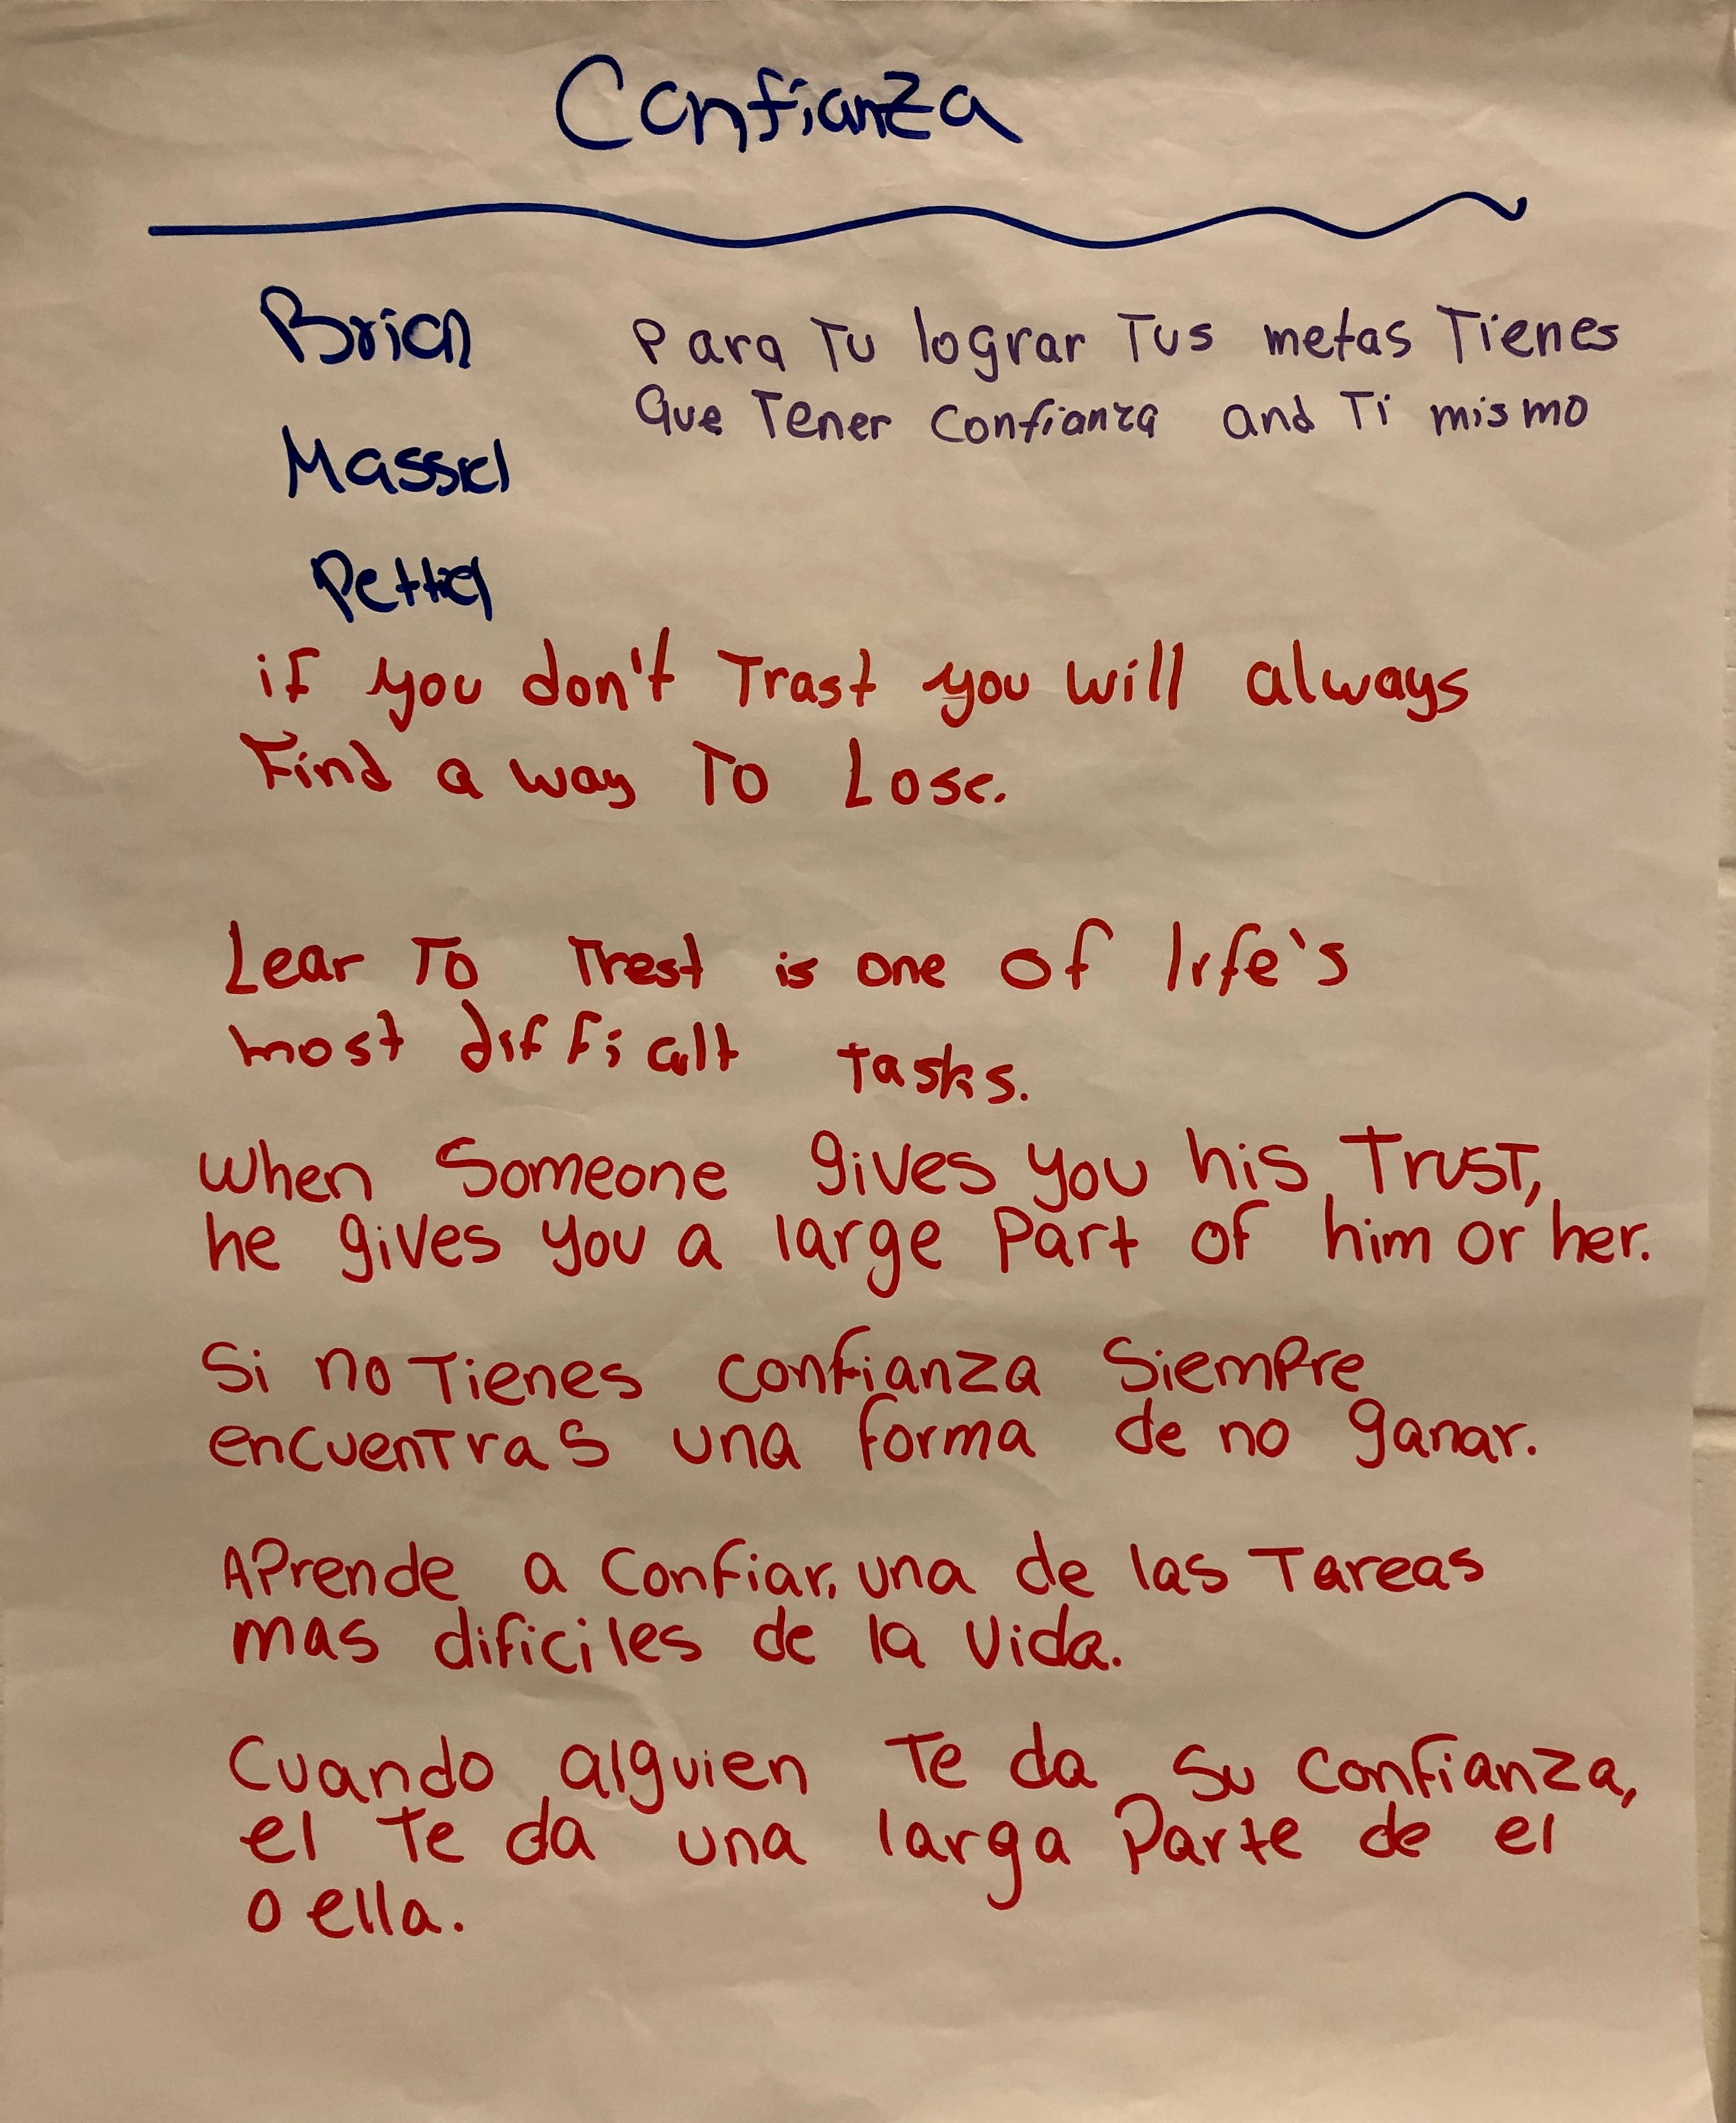 Confianza
Brian
Para Tu lograr Tus metas Tienes
Que Tener Confianza and Ti mismo
Massiel
if you don't Trast you will always
Find a way To Lose.
Lear To Trest is one of life's
most difficult Tasks.
When Someone gives you his Trust,
he gives you a large Part of him or her.
Si no Tienes confianza Siempre
encuentras una forma de no ganar.
APrende a Confiar, una de las Tareas
mas dificiles de la vida.
Cuando alguien Te da su confianza,
el Te da una larga Parte de el
o ella.